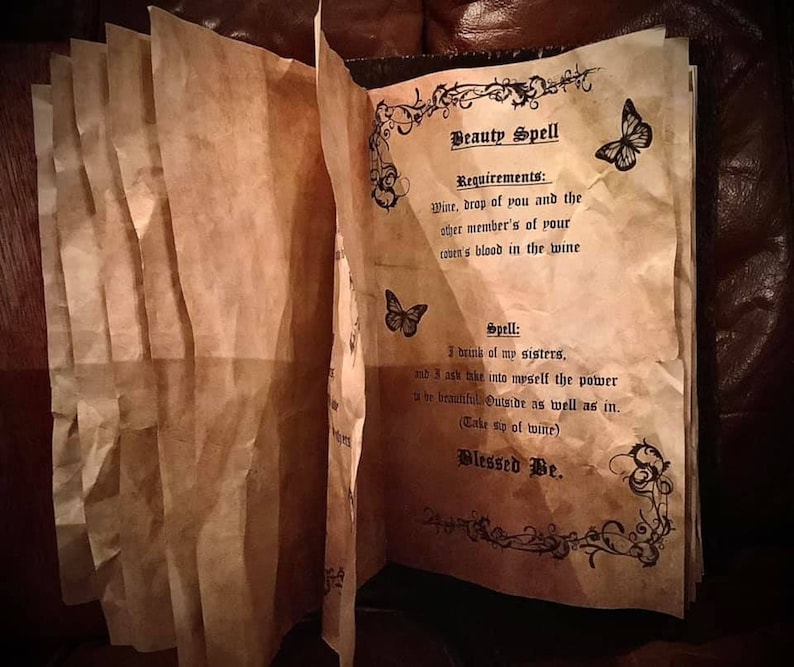 Beauty Spell
Requirements:
Wine, drop of you and the
other member's of your
coven's blood in the wine
Spell:
I drink of my sisters,
and I ask take into myself the power
to be beautiful. Outside as well as in.
(Take sip of wine)
Blessed Be.